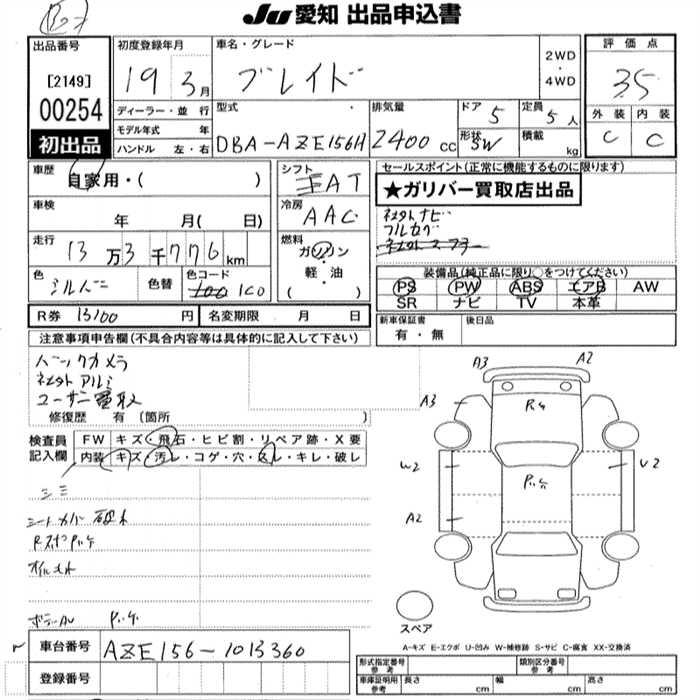 JU 愛知 出品申込書
出品番号
[2149]
00254
初出品
初度登録年月
19年3月
ディーラー・並 行
モデル年式 年
ハンドル 左・右
車名・グレード
ブレイド
2WD
・
4WD
型式
DBA-AZE156H
排気量
2400 cc
ドア 5
形状 SW
定員 5人
積載 kg
評価点
3.5
外装 内装
C C
車歴
自家用・( )
車検
年 月( 日)
走行
13万3千776km
色
シルバー
色替
色コード
1C0
R券 13100円
名変期限 月 日
シフト
FAT
冷房
AAC
燃料
ガソリン
軽・油
( )
セールスポイント(正常に機能するものに限ります)
★ガリバー買取店出品
社外ナビ
フルセグ
装備品(純正品に限り○をつけてください)
PS PW ABS エアB AW
SR ナビ TV 本革
新車保証書
有・無
後日品
注意事項申告欄(不具合内容等は具体的に記入して下さい)
バックカメラ
社外アルミ
ユーザー買取
修復歴 有(箇所 )
検査員
記入欄
FW キズ・飛石・ヒビ割・リペア跡・X要
内装 キズ・汚レ・コゲ・穴・スレ・キレ・破レ
シミ
シートカバー破れ
A3
A2
A3
W2
A2
V2
スペア
A-キズ E-エクボ U-凹み W-補修跡 S-サビ C-腐食 XX-交換済
車台番号 AZE156-1013360
登録番号
形式指定番号
参考
類別区分番号
参考
車庫証明用
参考
長さ cm 幅 cm 高さ cm